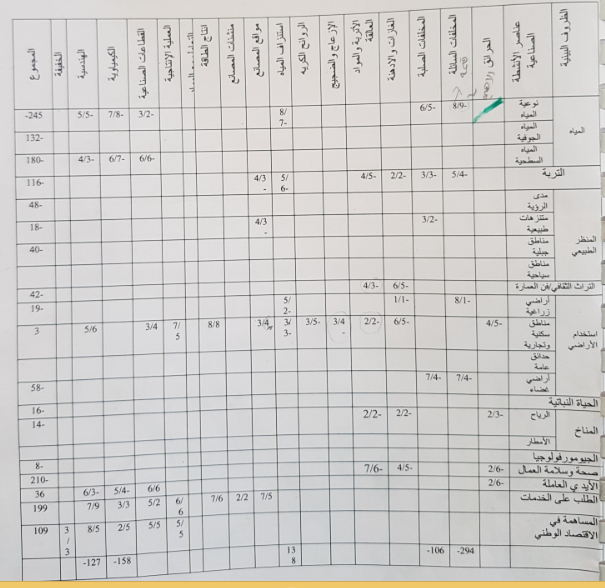 الظروف البيئية عناصر الأنشطة الصناعية الحرائق المخلفات السائلة المخلفات الصلبة الغازات والادخنة الأتربة والمواد العالقة الإزعاج والضجيج الروائح الكريه استنزاف المياه مواقع المصانع منشئات المصانع انتاج الطاقة العملية الإنتاجية القطاعات الصناعية الكيمياوية الهندسية الخفيفة المجموع
المياه
نوعية المياه 8/9- 6/5- 8/7- 3/2- 7/8- 5/5- 245-
المياه الجوفية 132-
المياه السطحية 6/6- 6/7- 4/3- 180-
التربة 5/4- 3/3- 2/2- 4/5- 5/6- 4/3- 116-
المنظر الطبيعي
مدى الرؤية 48-
متنزهات طبيعية 3/2- 4/3- 18-
مناطق جبلية 40-
مناطق سياحية
التراث الثقافي/فن العمارة 6/5- 4/3- 42-
استخدام الأراضي
أراضي زراعية 8/1- 1/1- 5/2- 19-
مناطق سكنية وتجارية 4/5- 6/5- 2/2- 3/4- 3/5- 3/3- 3/4 8/8 7/5 3/4 5/6 3
حدائق عامة
أراضي فضاء 7/4- 7/4- 58-
الحياة النباتية
المناخ
الرياح 2/3- 2/2- 2/2- 16-
14-
الأمطار
الجيومورفولوجيا
صحة وسلامة العمال 2/6- 4/5- 7/6- 8-
الأيدي العاملة 2/6- 210-
الطلب على الخدمات 7/5 2/2 7/6 6/6 5/4- 6/3- 36
6/6 5/2 3/3 7/9 199
المساهمة في الاقتصاد الوطني 5/5 5/5 2/5 8/5 3/3 109
-294 -106 138 -158 -127